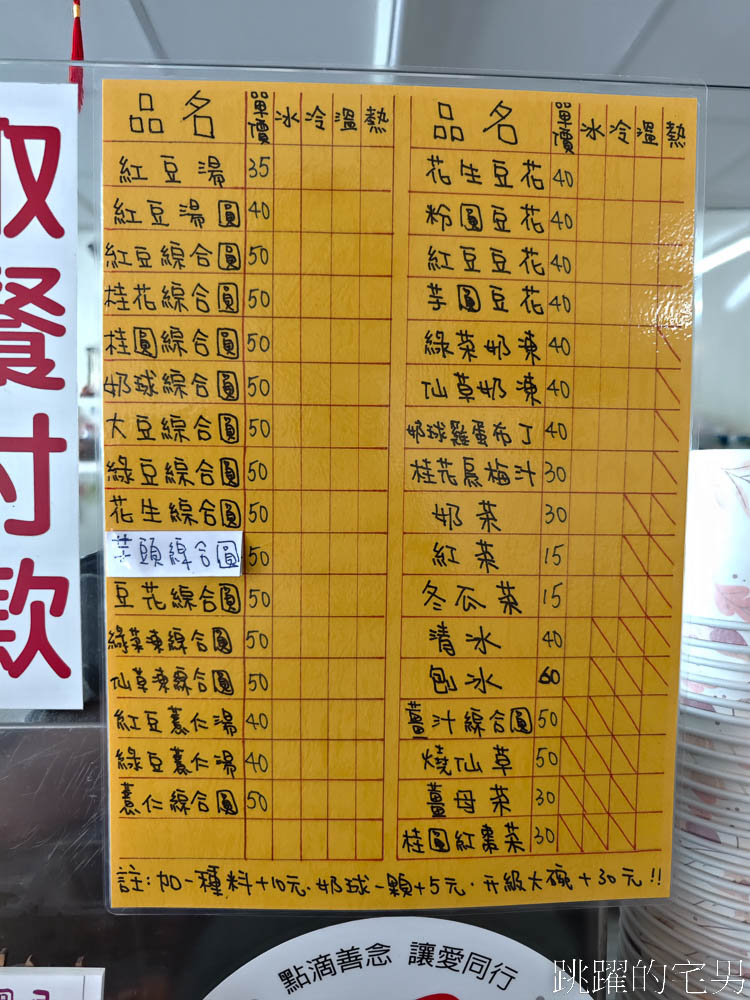 取餐付款
品名 單價 冰 冷 溫 熱
紅豆湯 35
紅豆湯圓 40
紅豆綜合圓 50
桂花綜合圓 50
桂圓綜合圓 50
奶球綜合圓 50
大豆綜合圓 50
綠豆綜合圓 50
花生綜合圓 50
芋頭綜合圓 50
豆花綜合圓 50
綠茶凍綜合圓 50
仙草凍綜合圓 50
紅豆薏仁湯 40
綠豆薏仁湯 40
薏仁綜合圓 50
品名 單價 冰 冷 溫 熱
花生豆花 40
粉圓豆花 40
紅豆豆花 40
芋圓豆花 40
綠茶奶凍 40
仙草奶凍 40
奶球雞蛋布丁 40
桂花烏梅汁 30
奶茶 30
紅茶 15
冬瓜茶 15
清冰 40
刨冰 60
薑汁綜合圓 50
燒仙草 50
薑母茶 30
桂圓紅棗茶 30
註:加一種料+10元.奶球一顆+5元.升級大碗+30元!!
點滴善念 讓愛同行
跳躍的宅男